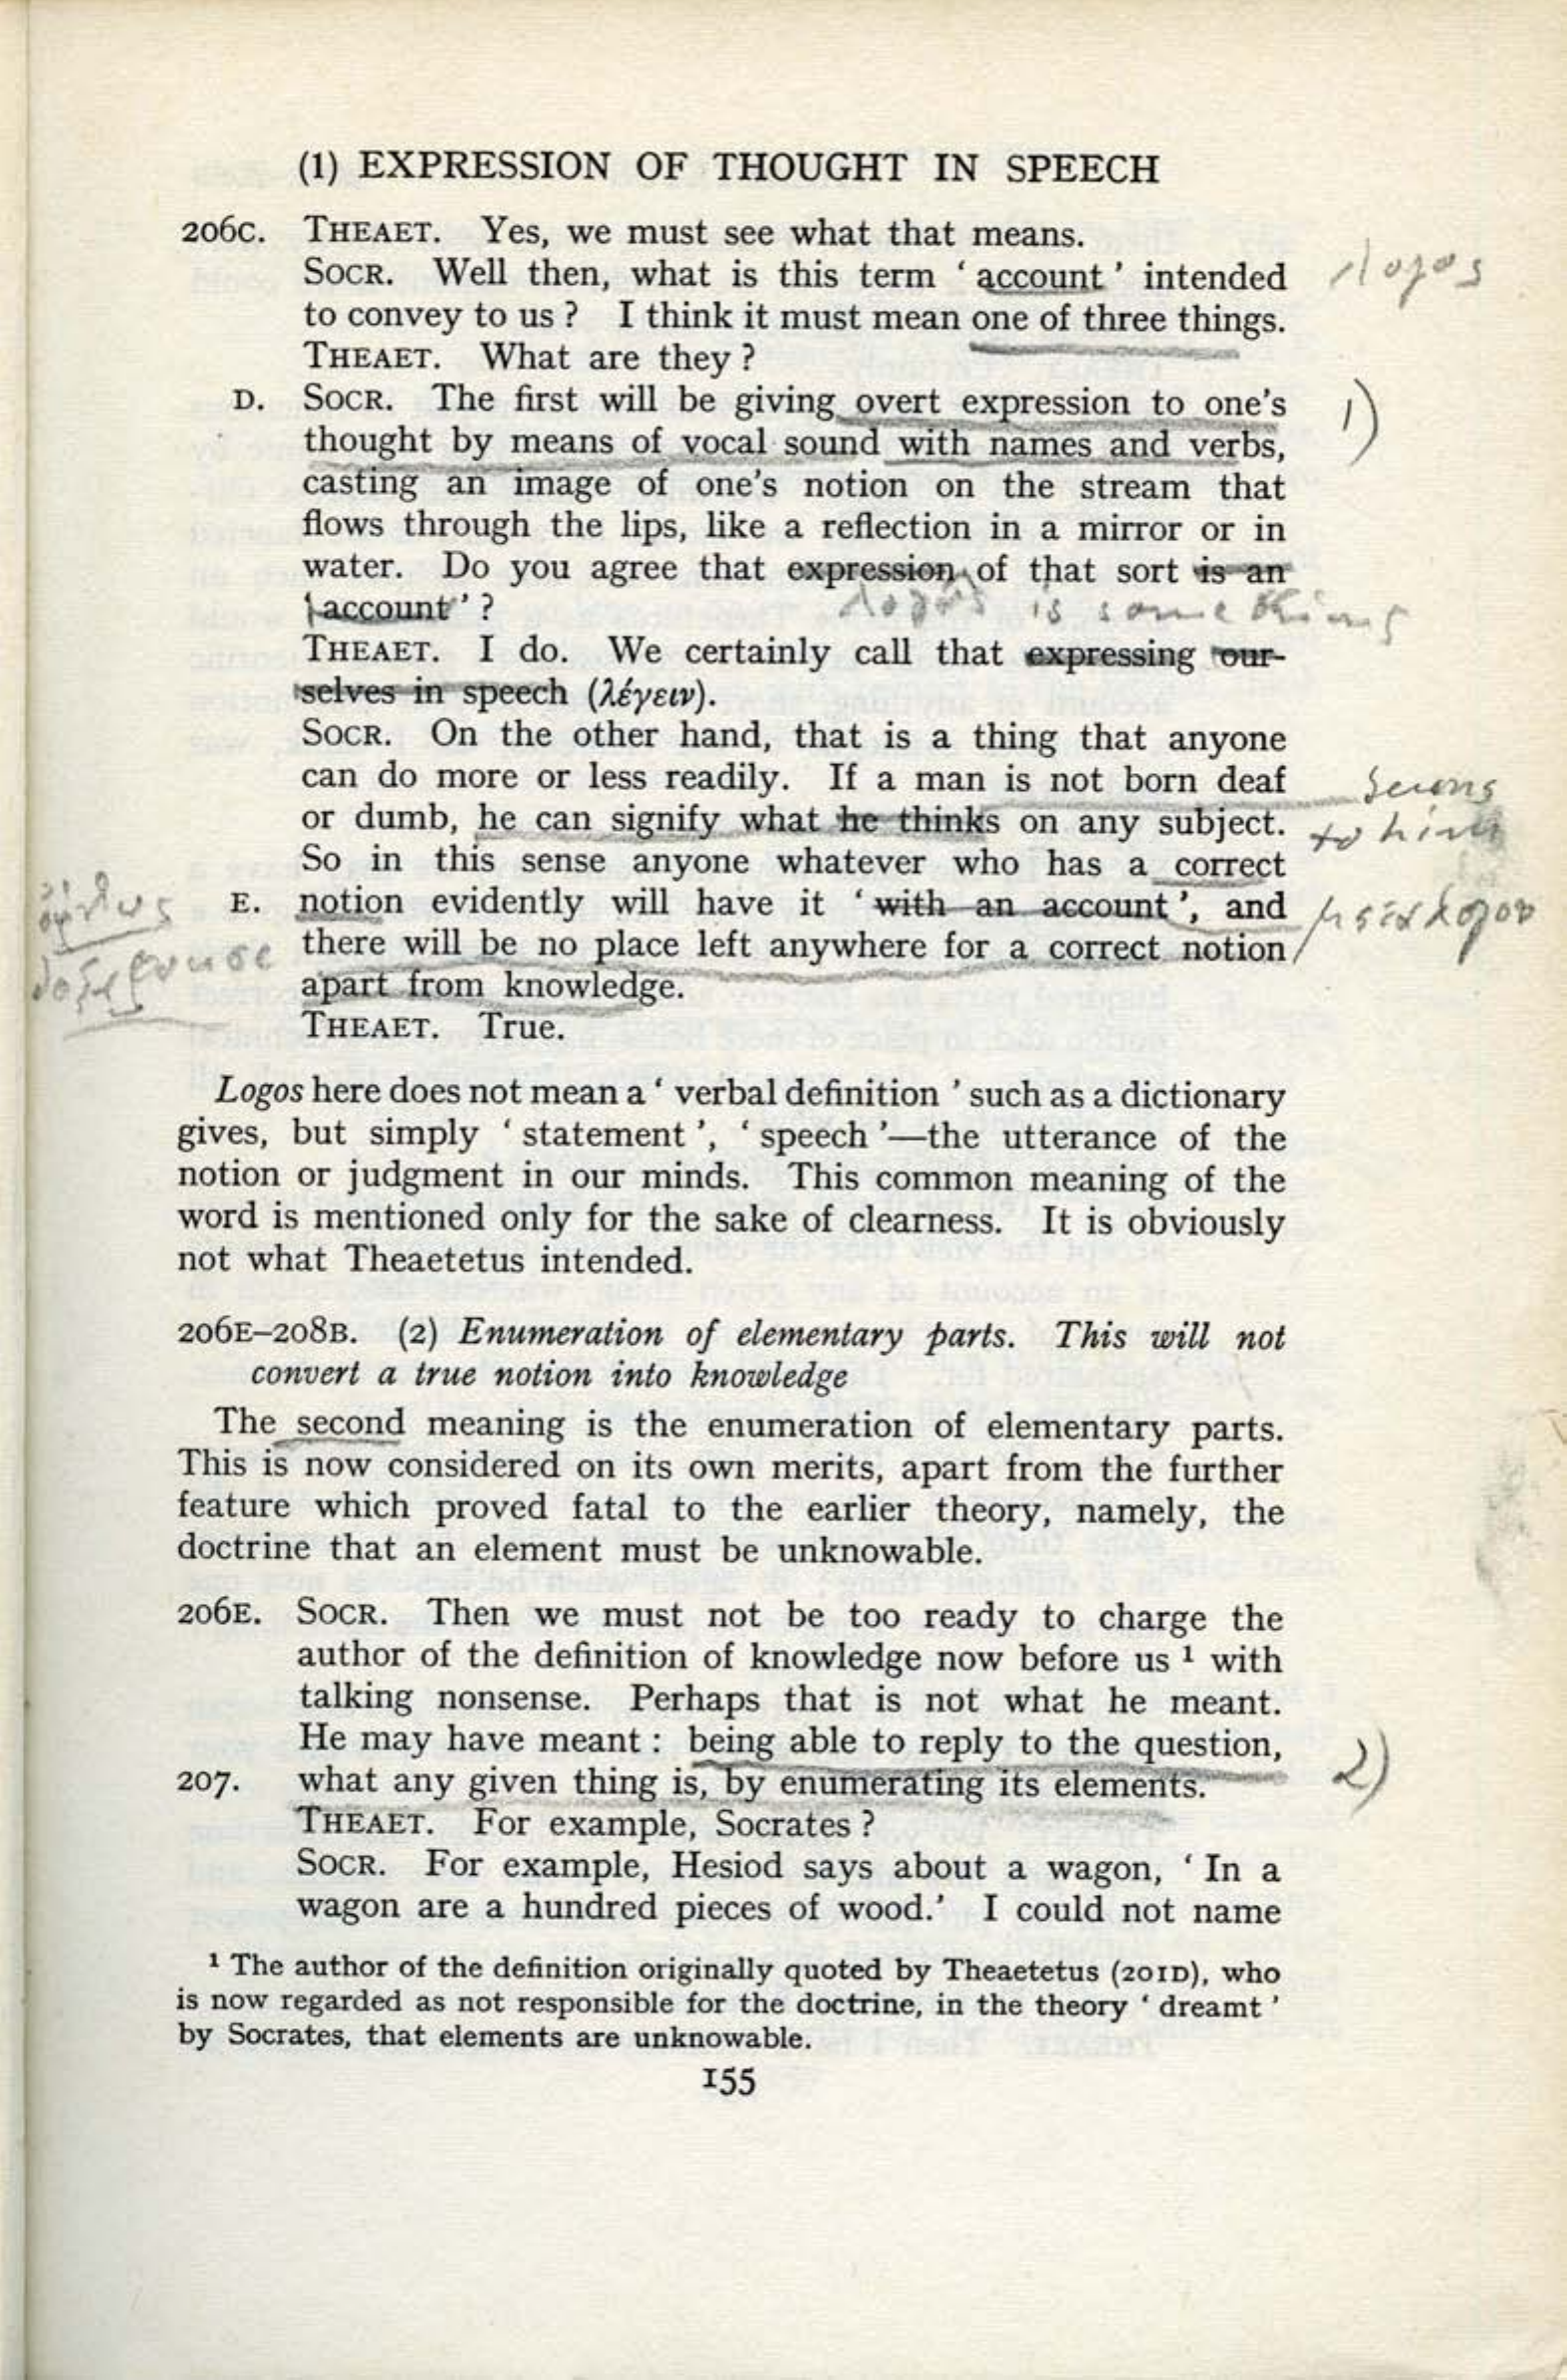 (1) EXPRESSION OF THOUGHT IN SPEECH
206C. THEAET. Yes, we must see what that means.
SOCR. Well then, what is this term ‘ account ’ intended
logos
to convey to us ? I think it must mean one of three things.
THEAET. What are they ?
D. SOCR. The first will be giving overt expression to one's
1)
thought by means of vocal sound with names and verbs,
casting an image of one's notion on the stream that
flows through the lips, like a reflection in a mirror or in
water. Do you agree that expression of that sort is an
‘ account ’ ?
logos is something
THEAET. I do. We certainly call that expressing our-
selves in speech (λέγειν).
SOCR. On the other hand, that is a thing that anyone
can do more or less readily. If a man is not born deaf
seems
or dumb, he can signify what he thinks on any subject.
to him
So in this sense anyone whatever who has a correct
E. notion evidently will have it ‘ with an account ’, and
there will be no place left anywhere for a correct notion
apart from knowledge.
THEAET. True.
Logos here does not mean a ‘ verbal definition ’ such as a dictionary
gives, but simply ‘ statement ’, ‘ speech ’—the utterance of the
notion or judgment in our minds. This common meaning of the
word is mentioned only for the sake of clearness. It is obviously
not what Theaetetus intended.
206E–208B. (2) Enumeration of elementary parts. This will not
convert a true notion into knowledge
The second meaning is the enumeration of elementary parts.
This is now considered on its own merits, apart from the further
feature which proved fatal to the earlier theory, namely, the
doctrine that an element must be unknowable.
206E. SOCR. Then we must not be too ready to charge the
author of the definition of knowledge now before us ¹ with
talking nonsense. Perhaps that is not what he meant.
He may have meant : being able to reply to the question,
2)
207. what any given thing is, by enumerating its elements.
THEAET. For example, Socrates ?
SOCR. For example, Hesiod says about a wagon, ‘ In a
wagon are a hundred pieces of wood.’ I could not name
¹ The author of the definition originally quoted by Theaetetus (201D), who
is now regarded as not responsible for the doctrine, in the theory ‘ dreamt ’
by Socrates, that elements are unknowable.
155